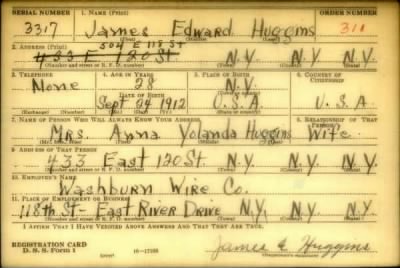 SERIAL NUMBER 1. NAME (Print) ORDER NUMBER
3317 James Edward Huggins 311
2. ADDRESS (Print) 504 E 118 St
433 E 120 St N.Y. N.Y. N.Y.
(Number and street or R. F. D. number) (Town) (County) (State)
3. TELEPHONE 4. AGE IN YEARS 5. PLACE OF BIRTH 6. COUNTRY OF CITIZENSHIP
None 28 N.Y.
Sept 24 1912 U.S.A. U.S.A.
(Exchange) (Number) (Mo.) (Day) (Yr.) (State or country)
7. NAME OF PERSON WHO WILL ALWAYS KNOW YOUR ADDRESS 8. RELATIONSHIP OF THAT PERSON
Mrs. Anna Yolanda Huggins Wife
9. ADDRESS OF THAT PERSON
433 East 120 St. N.Y. N.Y. N.Y.
(Number and street or R. F. D. number) (Town) (County) (State)
10. EMPLOYER'S NAME
Washburn Wire Co.
11. PLACE OF EMPLOYMENT OR BUSINESS
118th St - East River Drive N.Y. N.Y. N.Y.
(Number and street or R. F. D. number) (Town) (County) (State)
I AFFIRM THAT I HAVE VERIFIED ABOVE ANSWERS AND THAT THEY ARE TRUE.
REGISTRATION CARD
D. S. S. Form 1
James E Huggins